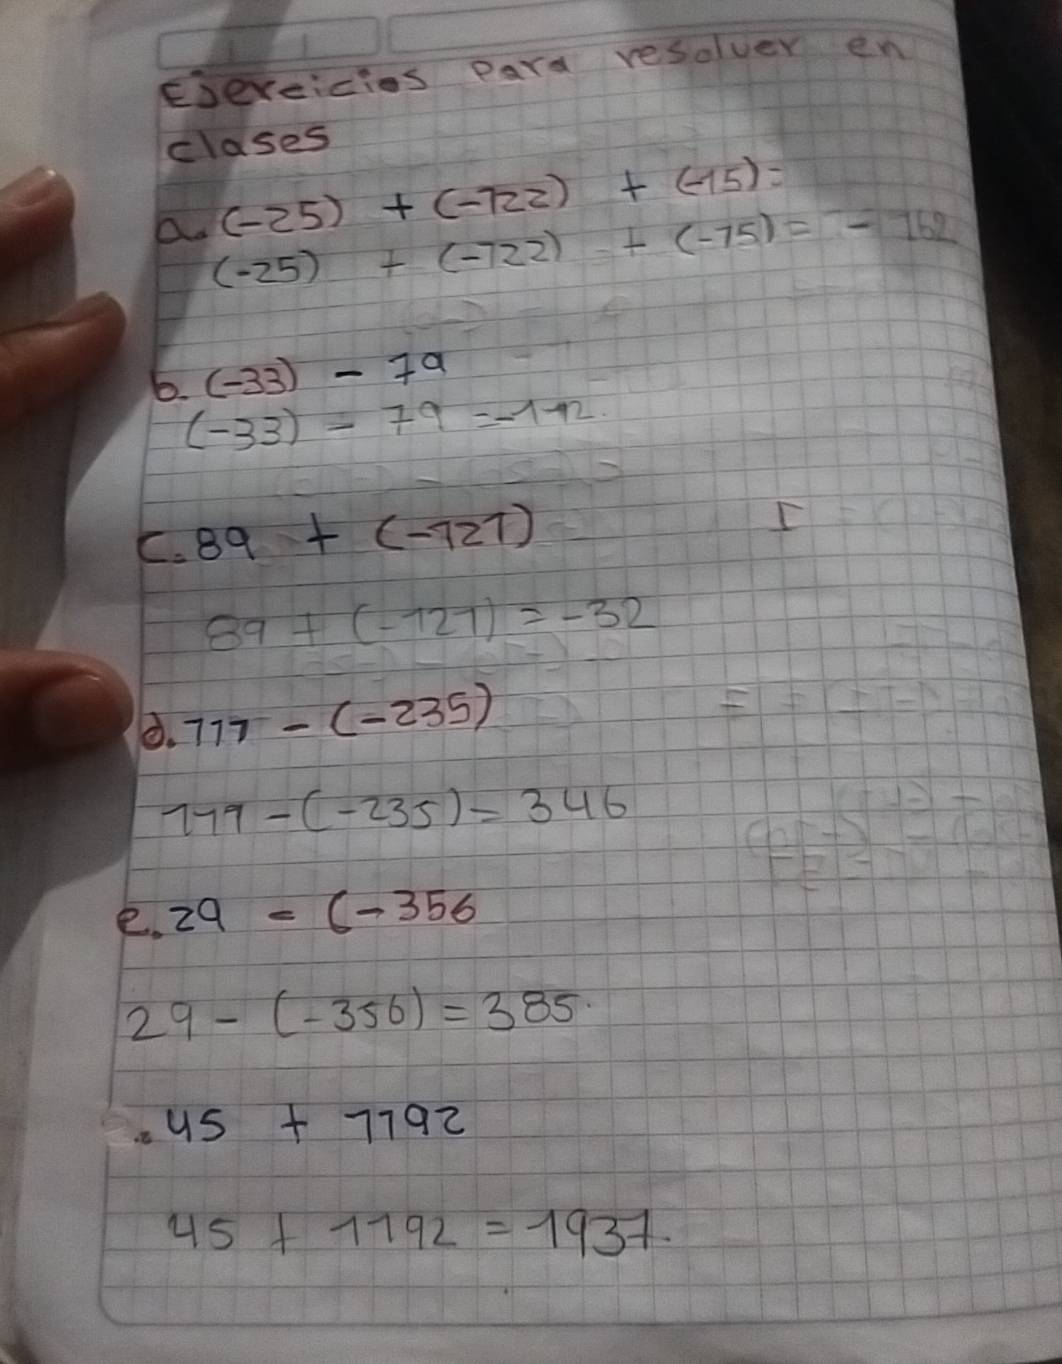 Ejercicios para resolver en
clases
a. (-25) + (-122) + (-15)=
(-25) + (-122) + (-15) = - 162
b. (-33) - 79
(-33) - 79 = -112.
c. 89 + (-121)
89 + (-121) = -32
d. 111 - (-235)
111 - (-235) = 346
e. 29 - (-356
29 - (-356) = 385.
. 45 + 1192
45 + 1192 = 1937.